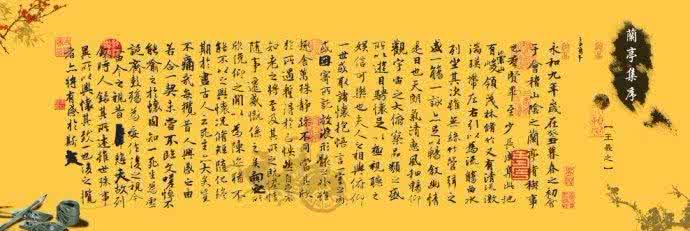 蘭亭集序
【王羲之】
永和九年歲在癸丑暮春之初會
于會稽山陰之蘭亭脩稧事
也羣賢畢至少長咸集此地
有峻領茂林脩竹又有清流激
湍暎帶左右引以為流觴曲水
列坐其次雖無絲竹管弦之
盛一觴一詠亦足以暢敘幽情
是日也天朗氣清惠風和暢仰
觀宇宙之大俯察品類之盛
所以遊目騁懷足以極視聽之
娛信可樂也夫人之相與俯仰
一世或取諸懷抱悟言一室之內
或因寄所託放浪形骸之外雖
趣舍萬殊靜躁不同當其欣
於所遇暫得於己怏然自足不
知老之將至及其所之既惓情
隨事遷感慨係之矣向之所
欣俛仰之間以為陳迹猶不
能不以之興懷況脩短隨化終
期於盡古人云死生亦大矣豈
不痛哉每攬昔人興感之由
若合一契未嘗不臨文嗟悼不
能喻之於懷固知一死生為虛
誕齊彭殤為妄作後之視今
亦由今之視昔悲夫故列
敘時人錄其所述雖世殊事
異所以興懷其致一也後之攬
者亦將有感於斯文